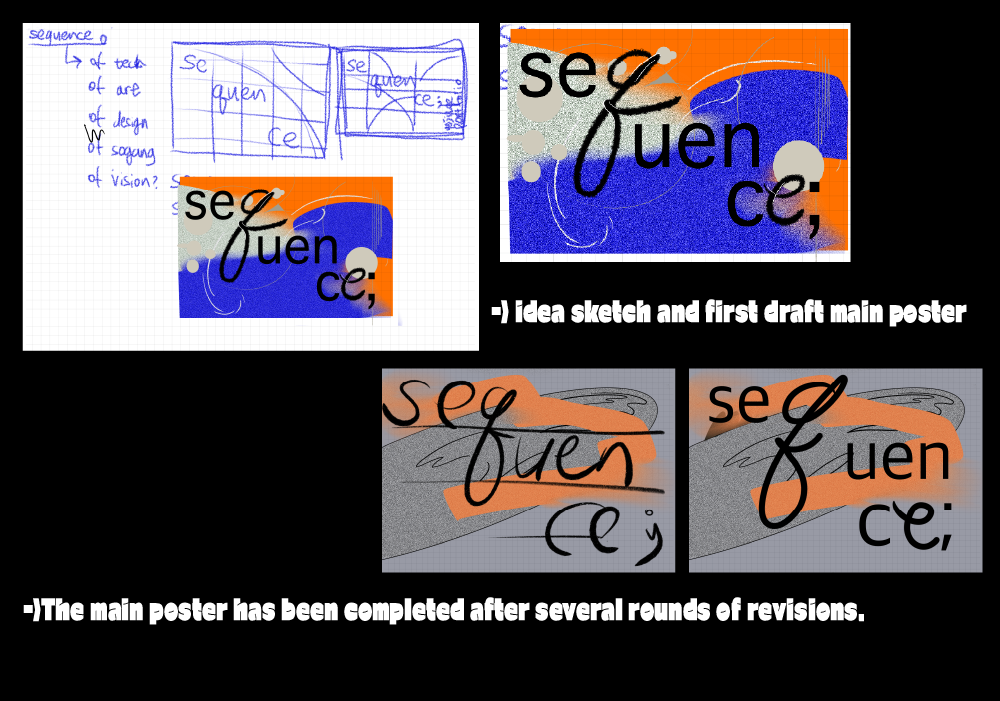 sequence
of tech
of art
of design
of sogang
of vision?
se
quen
ce
se
quen
ce;
seq
uen
ce;
seq
uen
ce;
-) idea sketch and first draft main poster
seq
uen
ce;
seq
uen
ce;
-)The main poster has been completed after several rounds of revisions.